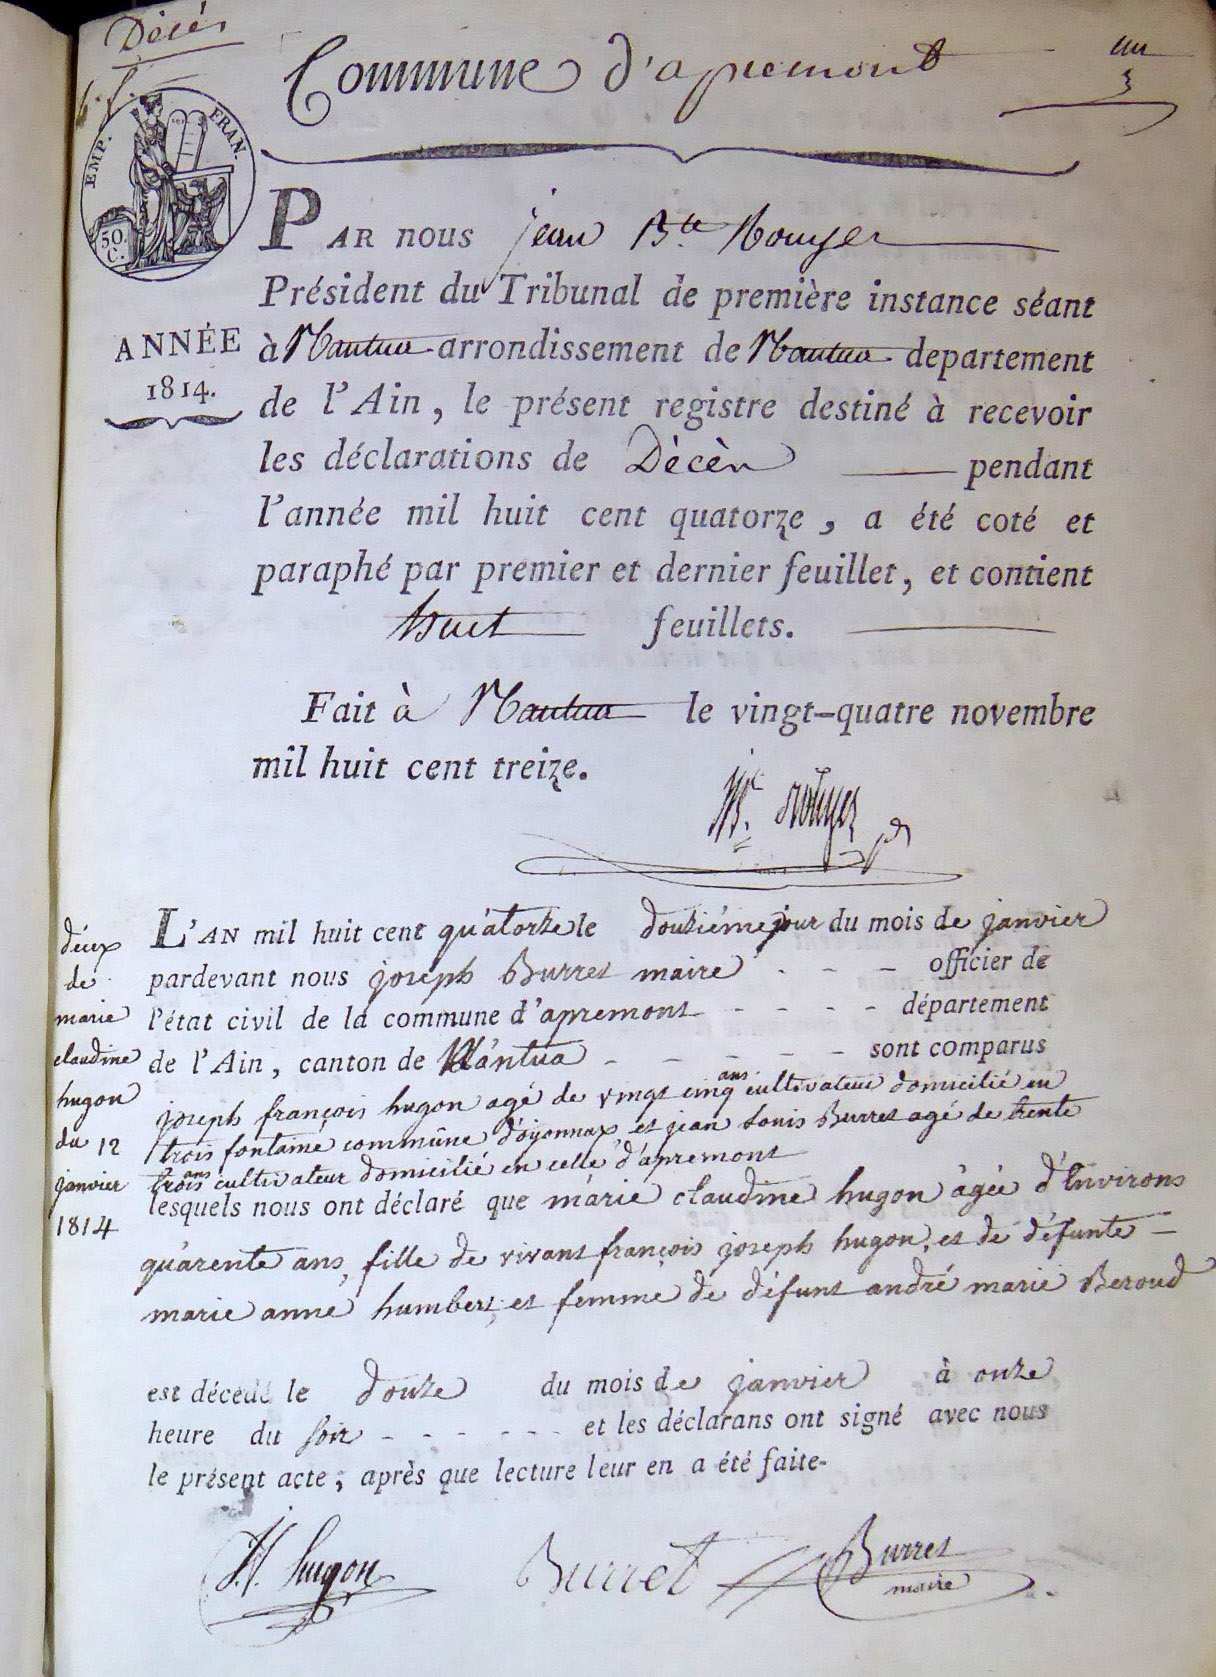 Décés
Commune d'apremont
un
EMP. FRAN.
50. C.
PAR nous jean B.te Rouyer
Président du Tribunal de première instance séant
à Nantua arrondissement de Nantua departement
de l'Ain, le présent registre destiné à recevoir
les déclarations de Décès pendant
l'année mil huit cent quatorze, a été coté et
paraphé par premier et dernier feuillet, et contient
huit feuillets.
Fait à Nantua le vingt-quatre novembre
mil huit cent treize.
ANNÉE
1814.
Rouyer
L'AN mil huit cent quátorze le douziéme jour du mois de janvier
pardevant nous joseph Burret maire - - - officier de
l'état civil de la commune d'apremont - - - - département
de l'Ain, canton de Nántua - - - - - sont comparus
joseph françois hugon agé de vingt cinq ans cultivateur domicilié en
trois fontaine commune d'oyonnax et jean louis Burret agé de trente
trois ans cultivateur domicilié en celle d'apremont
lesquels nous ont déclaré que márie claudine hugon âgée d'Environs
quárente ans, fille de vivant françois joseph hugon, et de défunte -
marie anne humbert, et femme de défunt andré marie Beroud
est décédé le douze du mois de janvier à onze
heure du soir - - - - - - et les déclarans ont signé avec nous
le présent acte, après que lecture leur en a été faite-
déux
de
marie
claudine
hugon
du 12
janvier
1814
J.f. hugon
Burret
Burret
maire